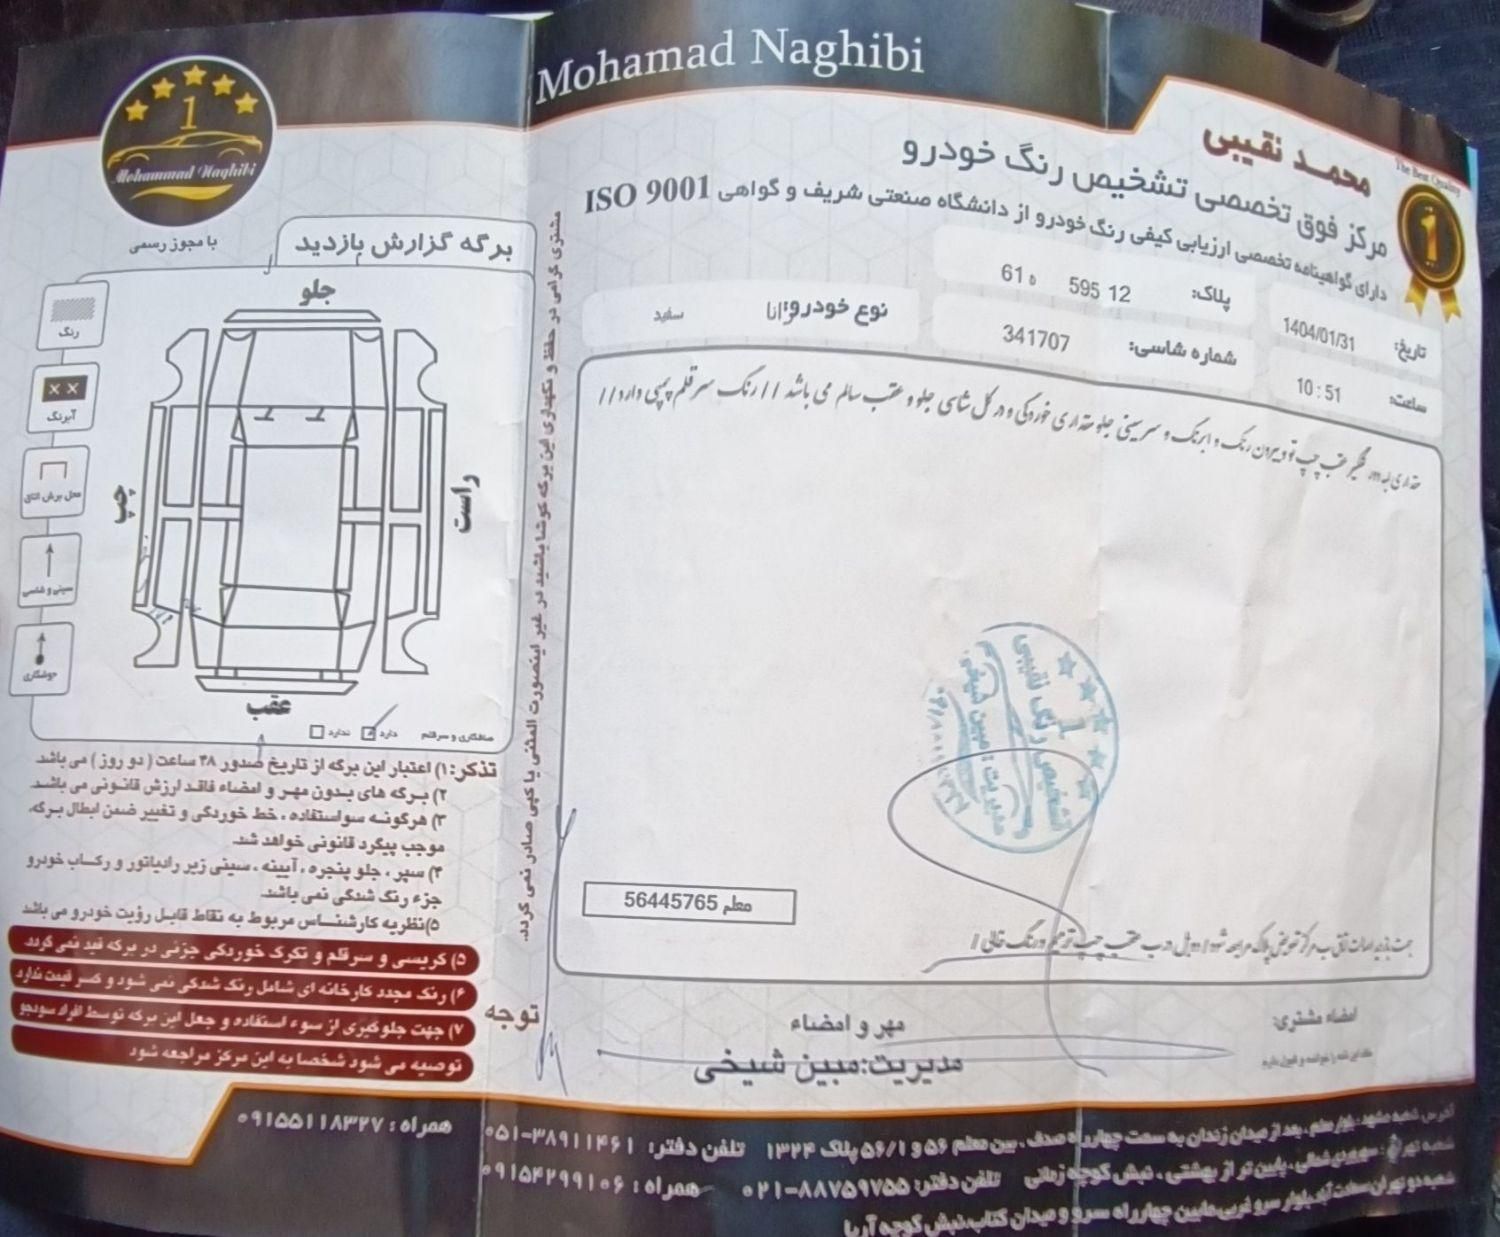 Mohamad Naghibi
محمد نقیبی
The Best Quality
1
مرکز فوق تخصصی تشخیص رنگ خودرو
دارای گواهینامه تخصصی ارزیابی کیفی رنگ خودرو از دانشگاه صنعتی شریف و گواهی ISO 9001
تاریخ: 1404/01/31
پلاک: 12 595 ه 61
ساعت: 10 : 51
شماره شاسی: 341707
نوع خودرو: رانا سفید
گلگیر عقب چپ تو و بیرون رنگ و ابرنگ و سر سینی جلو مقداری خوردگی و در کل شاسی جلو و عقب سالم می باشد // رنگ سر قلم پمپی دارد //
معلم 56445765
عقب چپ ترمیم و رنگ
امضاء مشتری:
مهر و امضاء
مدیریت: مبین شیخی
تشخیص رنگ نقیبی
مدیریت: مبین شیخی
1
Mohammad Naghibi
با مجوز رسمی
برگه گزارش بازدید
جلو
راست
چپ
عقب
رنگ
آبرنگ
محل برش اتاق
سینی و شاسی
جوشکاری
صافکاری و سرقلم دارد ندارد
مشتری گرامی در حفظ و نگهداری این برگه کوشا باشید در غیر اینصورت المثنی یا کپی صادر نمی گردد.
تذکر: ۱) اعتبار این برگه از تاریخ صدور ۴۸ ساعت ( دو روز ) می باشد.
۲) برگه های بدون مهر و امضاء فاقد ارزش قانونی می باشد.
۳) هرگونه سواستفاده ، خط خوردگی و تغییر ضمن ابطال برگه،
موجب پیگرد قانونی خواهد شد.
۴) سپر ، جلو پنجره ، آیینه ، سینی زیر رادیاتور و رکاب خودرو
جزء رنگ شدگی نمی باشد.
۵) نظریه کارشناس مربوط به نقاط قابل رؤیت خودرو می باشد
۵) کریسی و سرقلم و تکرک خوردگی جزئی در برگه قید نمی گردد.
۶) رنگ مجدد کارخانه ای شامل رنگ شدگی نمی شود و کسر قیمت ندارد
توجه
۷) جهت جلوگیری از سوء استفاده و جعل این برگه توسط افراد سودجو
توصیه می شود شخصا به این مرکز مراجعه شود
همراه : ۰۹۱۵۵۱۱۸۳۲۷
آدرس شعبه مشهد: بلوار معلم ، بعد از میدان زندان به سمت چهارراه صدف ، بین معلم ۵۶ و ۵۶/۱ پلاک ۱۳۲۴ تلفن دفتر: ۰۵۱-۳۸۹۱۱۴۶۱
شعبه تهران: سهروردی شمالی ، پایین تر از بهشتی ، نبش کوچه زمانی تلفن دفتر: ۰۲۱-۸۸۷۵۹۷۵۵ همراه : ۰۹۱۵۴۲۹۹۱۰۶
شعبه دو تهران: سعادت آباد بلوار سرو غربی مابین چهارراه سرو و میدان کتاب، نبش کوچه آریا